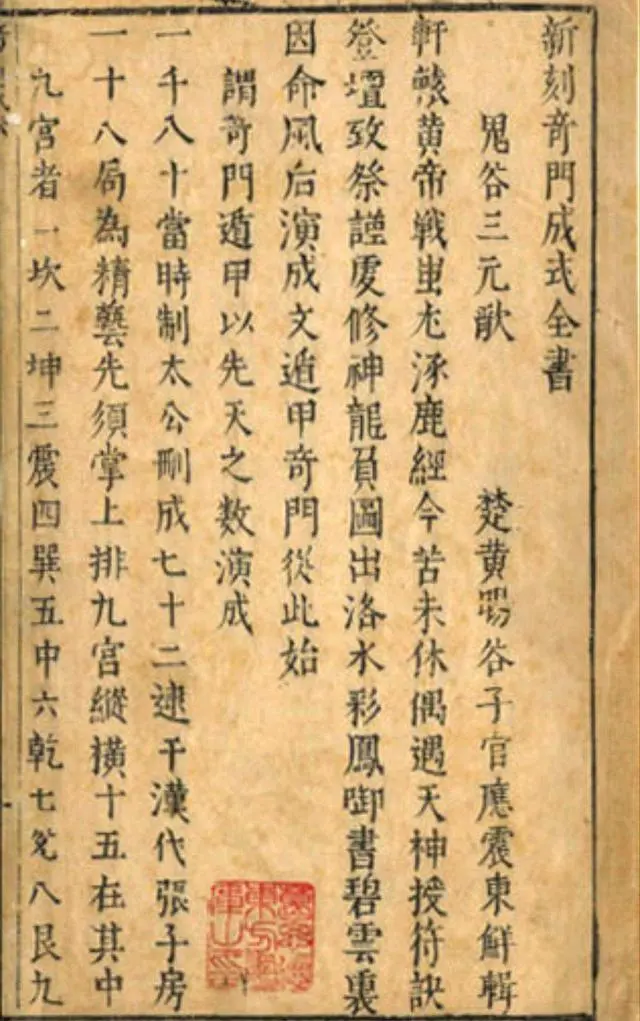 新刻奇門成式全書
鬼谷三元歌
楚黃暘谷子官應震東鮮輯
軒轅黃帝戰蚩尤涿鹿經今苦未休偶遇天神授符訣
登壇致祭謹虔修神龍負圖出洛水彩鳳啣書碧雲裏
因命風后演成文遁甲奇門從此始
謂奇門遁甲以先天之數演成
一千八十當時制太公刪成七十二逮于漢代張子房
一十八局為精藝先須掌上排九宮縱橫十五在其中
九宮者一坎二坤三震四巽五中六乾七兌八艮九